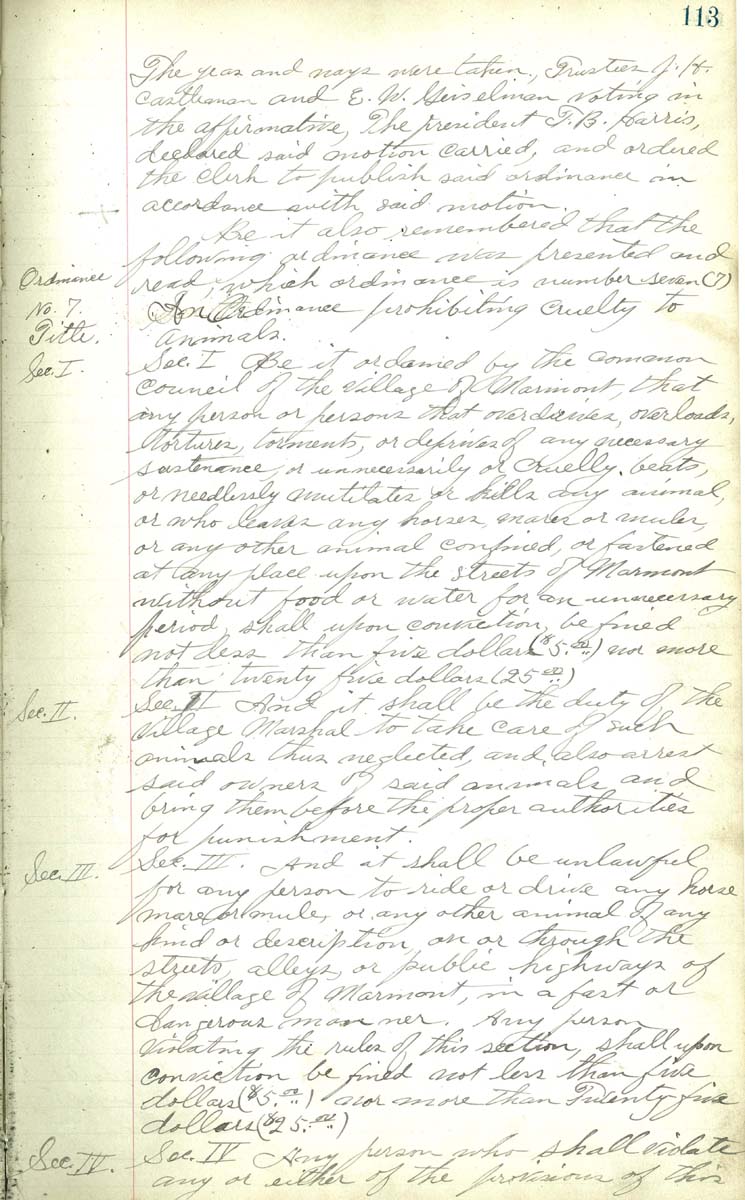 113
The yeas and nays were taken, Trusties, J. H.
Castleman and E. W. Geiselman voting in
the affirmative, The president T. B. Harris,
declared said motion carried, and ordered
the clerk to publish said ordinance in
accordance with said motion.
Be it also remembered that the
following ordinance was presented and
read, which ordinance is number seven (7)
Ordinance
No. 7.
Title.
An Ordinance prohibiting Cruelty to
animals.
Sec. I.
Sec. I Be it ordained by the common
council of the village of Marmont, that
any person or persons that overdrives, overloads,
tortures, torments, or deprives of any necessary
sustenance, or unnecessarily or cruelly beats,
or needlessly mutilates or kills any animal,
or who leaves any horses, mares or mules,
or any other animal confined, or fastened
at any place upon the streets of Marmont
without food or water for an unnecessary
period, shall upon conviction, be fined
not less than five dollars ($5.00) nor more
than twenty five dollars (25 00)
Sec. II.
Sec. II And it shall be the duty of the
village Marshal to take care of such
animals thus neglected, and also arrest
said owners of said animals and
bring them before the proper authorities
for punishment.
Sec. III.
Sec. III. And at shall be unlawful
for any person to ride or drive any horse
mare or mule, or any other animal of any
kind or description, on or through the
streets, alleys, or public highways of
the village of Marmont, in a fast or
dangerous manner. Any person
violating the rules of this section, shall upon
conviction be fined not less than five
dollars ($5.00) nor more than Twenty five
dollars ($25.00)
Sec. IV.
Sec. IV Any person who shall violate
any or either of the provisions of this